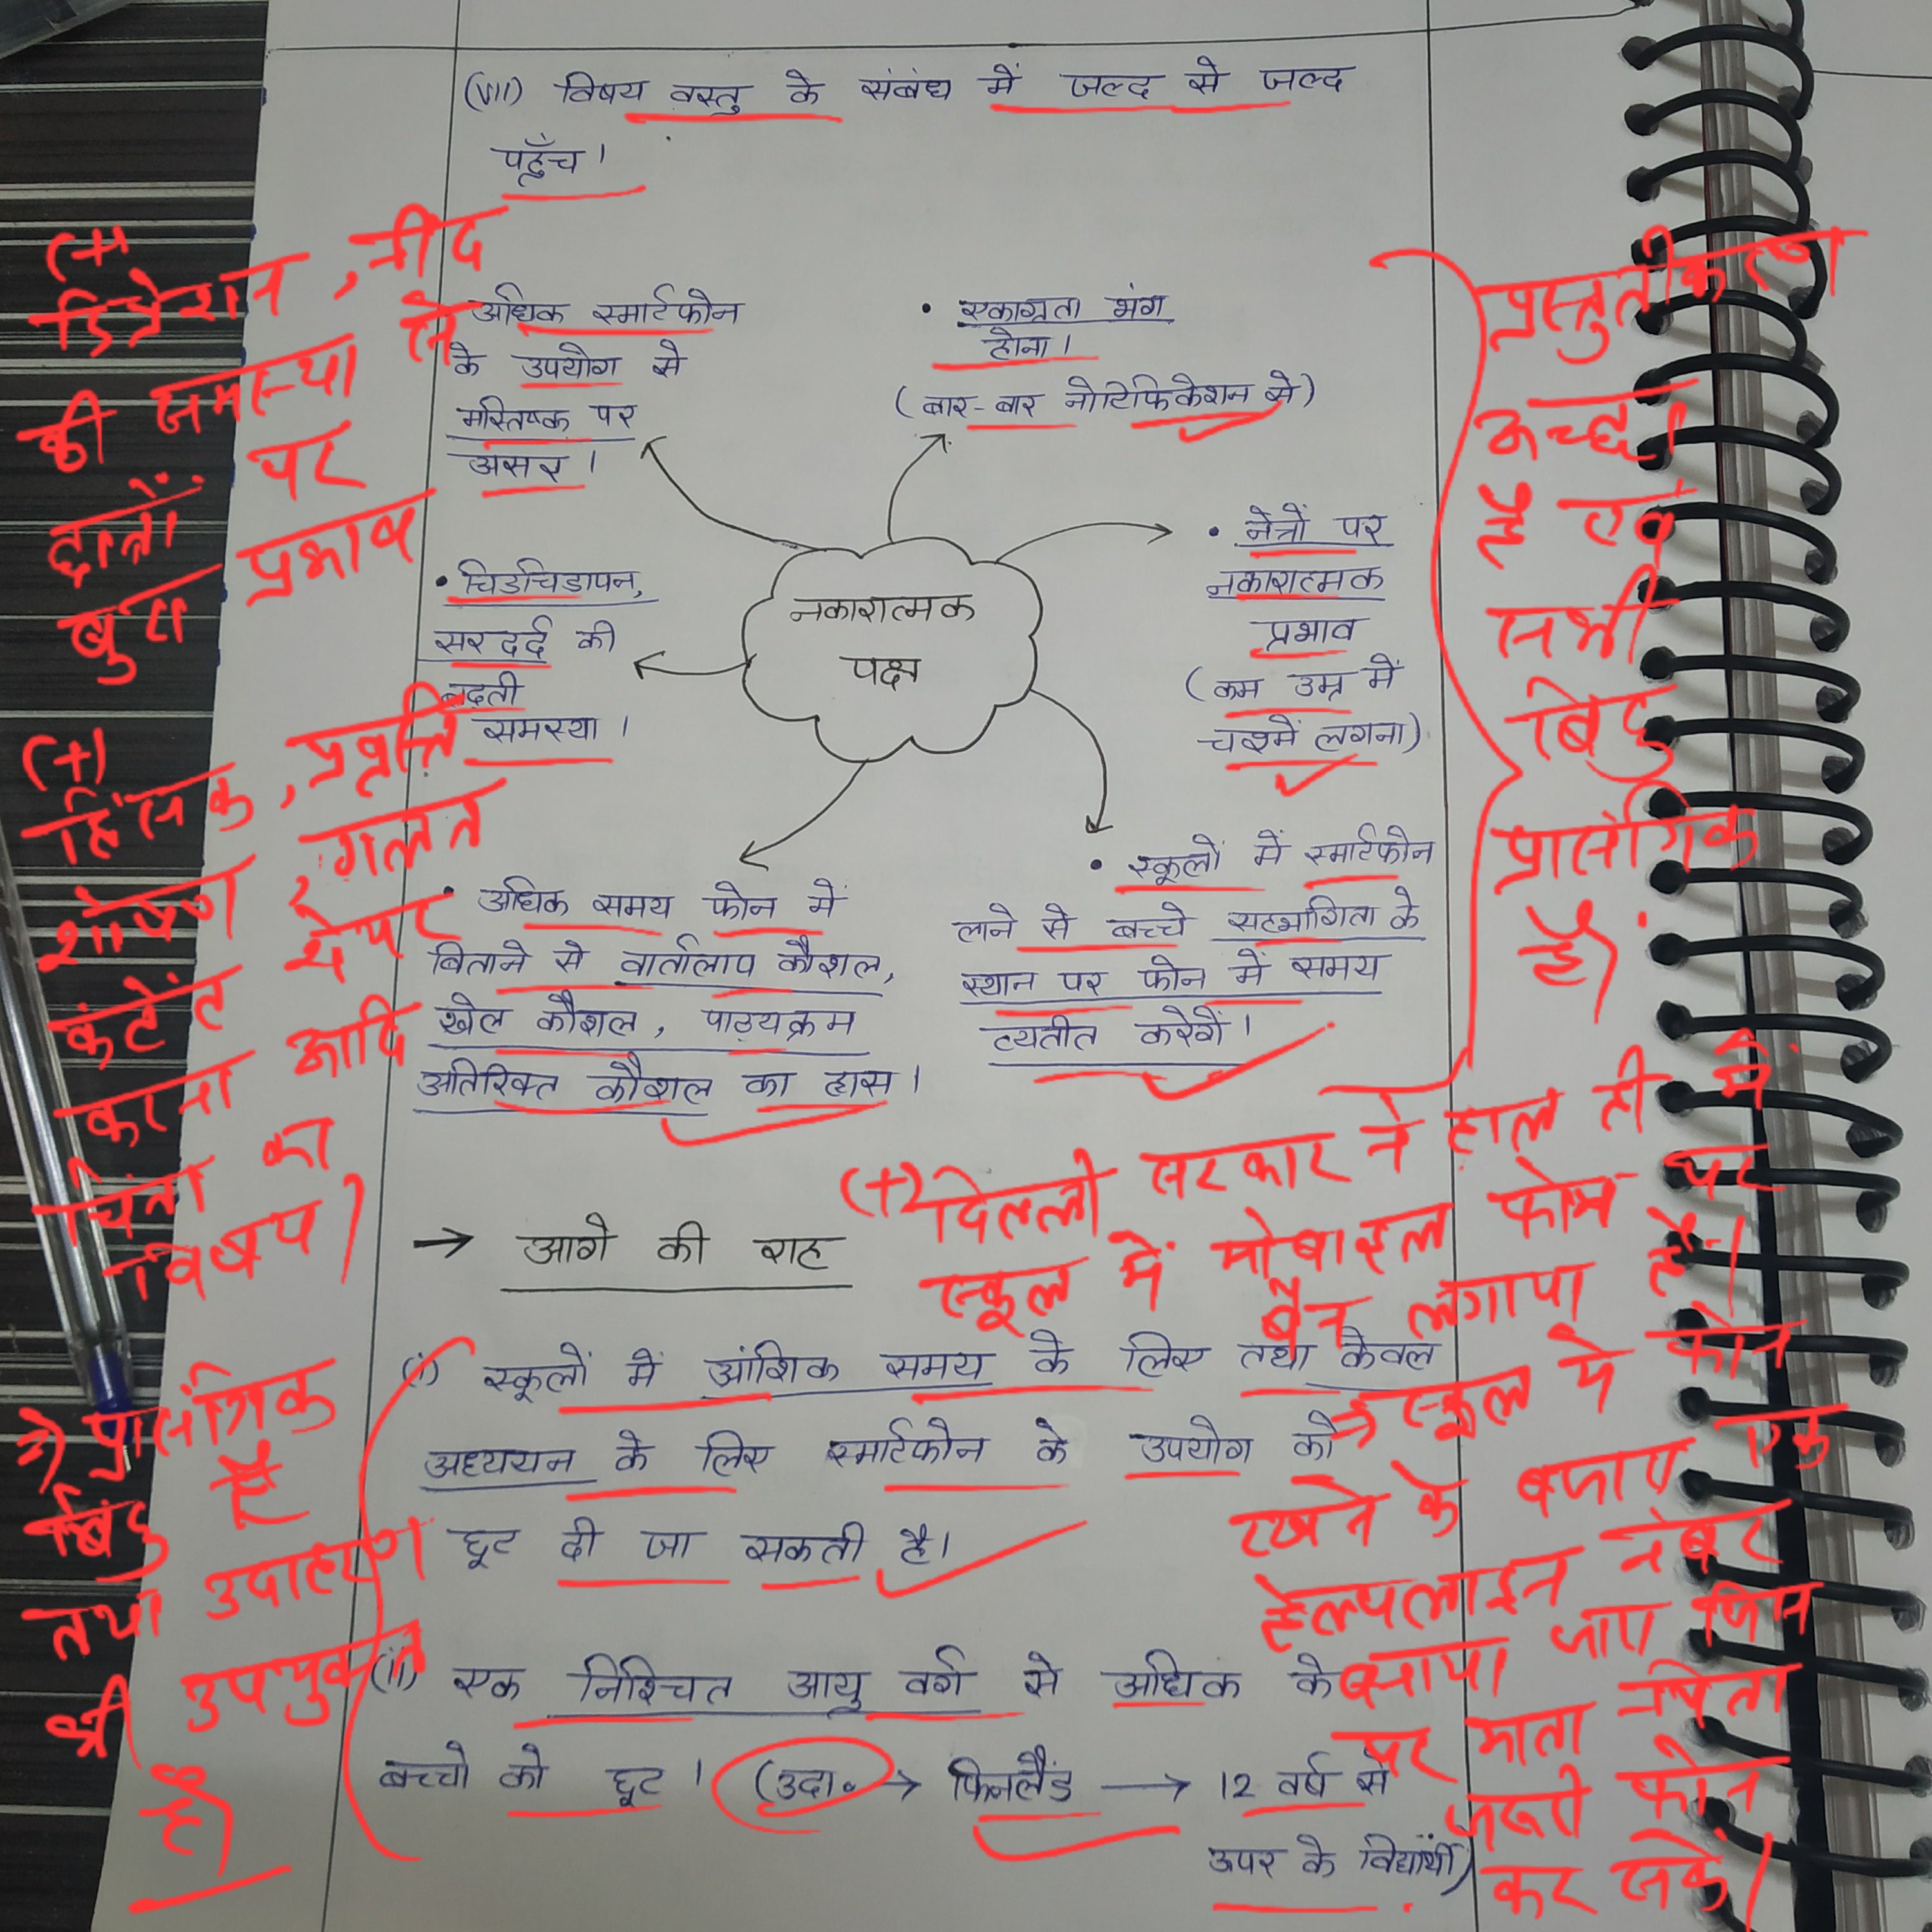 (VII) विषय वस्तु के संबंध में जल्द से जल्द
पहुँच।
अधिक स्मार्टफोन
के उपयोग से
मस्तिष्क पर
असर।
• एकाग्रता भंग
होना।
(बार-बार नोटिफिकेशन से)
• नेत्रों पर
नकारात्मक
प्रभाव
(कम उम्र में
चश्में लगना)
• चिडचिडापन,
सरदर्द की
बढ़ती
समस्या।
नकारात्मक
पक्ष
• अधिक समय फोन में
बिताने से वार्तालाप कौशल,
खेल कौशल, पाठ्यक्रम
अतिरिक्त कौशल का ह्रास।
• स्कूलों में स्मार्टफोन
लाने से बच्चे सहभागिता के
स्थान पर फोन में समय
व्यतीत करेगें।
→ आगे की राह
(i) स्कूलों में आंशिक समय के लिए तथा केवल
अध्ययन के लिए स्मार्टफोन के उपयोग की
छूट दी जा सकती है।
(ii) एक निश्चित आयु वर्ग से अधिक के
बच्चो को छूट। (उदा. → फिनलैंड → 12 वर्ष से
ऊपर के विद्यार्थी)
(+)
डिप्रेशन, नींद
की समस्या से
छात्रों पर
बुरा प्रभाव
(+)
हिंसक, प्रवृत्ति
शोषण, गलत
कंटेंट शेयर
करना आदि
चिंता का
विषय।
→) प्रासंगिक
बिंदु है
तथा उदाहरण
भी उपयुक्त
है।
प्रस्तुतीकरण
अच्छा
है एवं
सभी
बिंदु
प्रासंगिक
है।
(+) दिल्ली सरकार ने हाल ही में
स्कूल में मोबाइल फोन पर
बैन लगाया है।
→ स्कूल में फोन
रखने के बजाए एक
हेल्पलाइन नंबर
बनाया जाए जिस
पर माता पिता
जरूरी फोन
कर सकें।